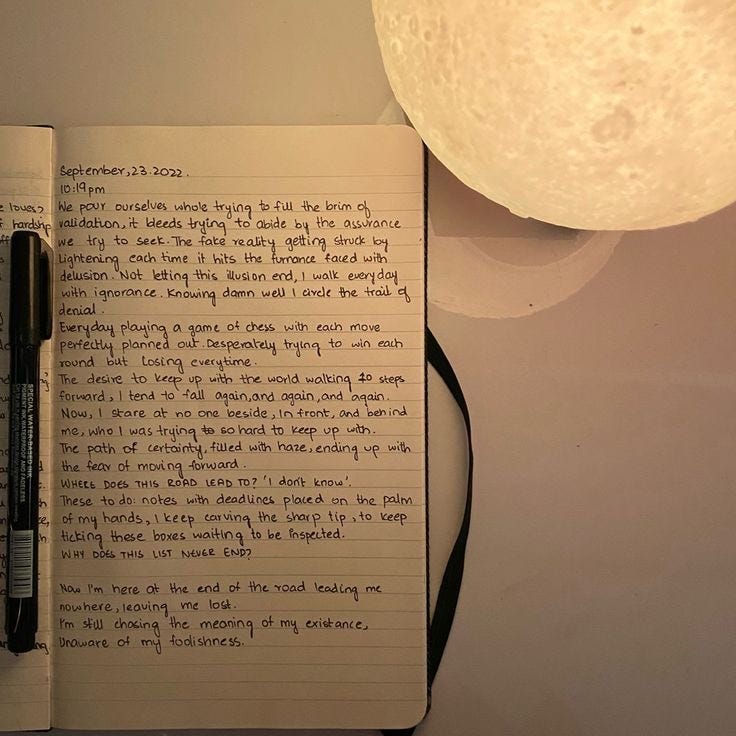 September,23.2022.
10:19pm
We pour ourselves whole trying to fill the brim of
validation, it bleeds trying to abide by the assurance
we try to seek. The fake reality getting struck by
Lightening each time it hits the furnance faced with
delusion. Not letting this illusion end, I walk everyday
with ignorance. Knowing damn well I circle the trail of
denial.
Everyday playing a game of chess with each move
perfectly planned out. Desperately trying to win each
round but Losing everytime.
The desire to keep up with the world walking 10 steps
forward, I tend to fall again, and again, and again.
Now, I stare at no one beside, In front, and behind
me, who I was trying so hard to keep up with.
The path of certainty, filled with haze, ending up with
the fear of moving forward.
WHERE DOES THIS ROAD LEAD TO? 'I don't know'.
These to do: notes with deadlines placed on the palm
of my hands, I keep carving the sharp tip, to keep
ticking these boxes waiting to be inspected.
WHY DOES THIS LIST NEVER END?
Now I'm here at the end of the road leading me
nowhere, leaving me lost.
I'm still chasing the meaning of my existance,
Unaware of my foolishness.
e loves?
hardship
SPECIAL WATER-BASED INK
PIGMENT INK, WATERPROOF AND FADELESS